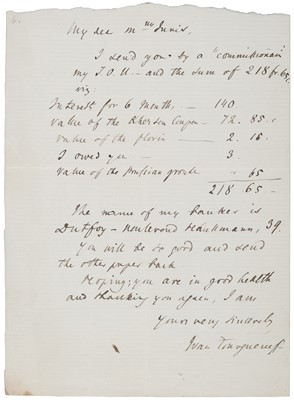 My dear Mrs Innis,
I send you by a "commissionair"
my I.O.U. – and the sum of 218 fr. 65 c.
viz:
Interest for 6 Month. — 140.
Value of the Coupon — 72. 85. c
value of the florin — 2. 15.
I owed you — 3.
Value of the Prussian — 65
218 65 –
The name of my banker is
Dutfoy – Boulevard Haussmann, 39.
You will be so good and send
the other paper back.
Hoping, you are in good health
and thanking you again, I am
Yours very sincerely
Ivan Tourgueneff